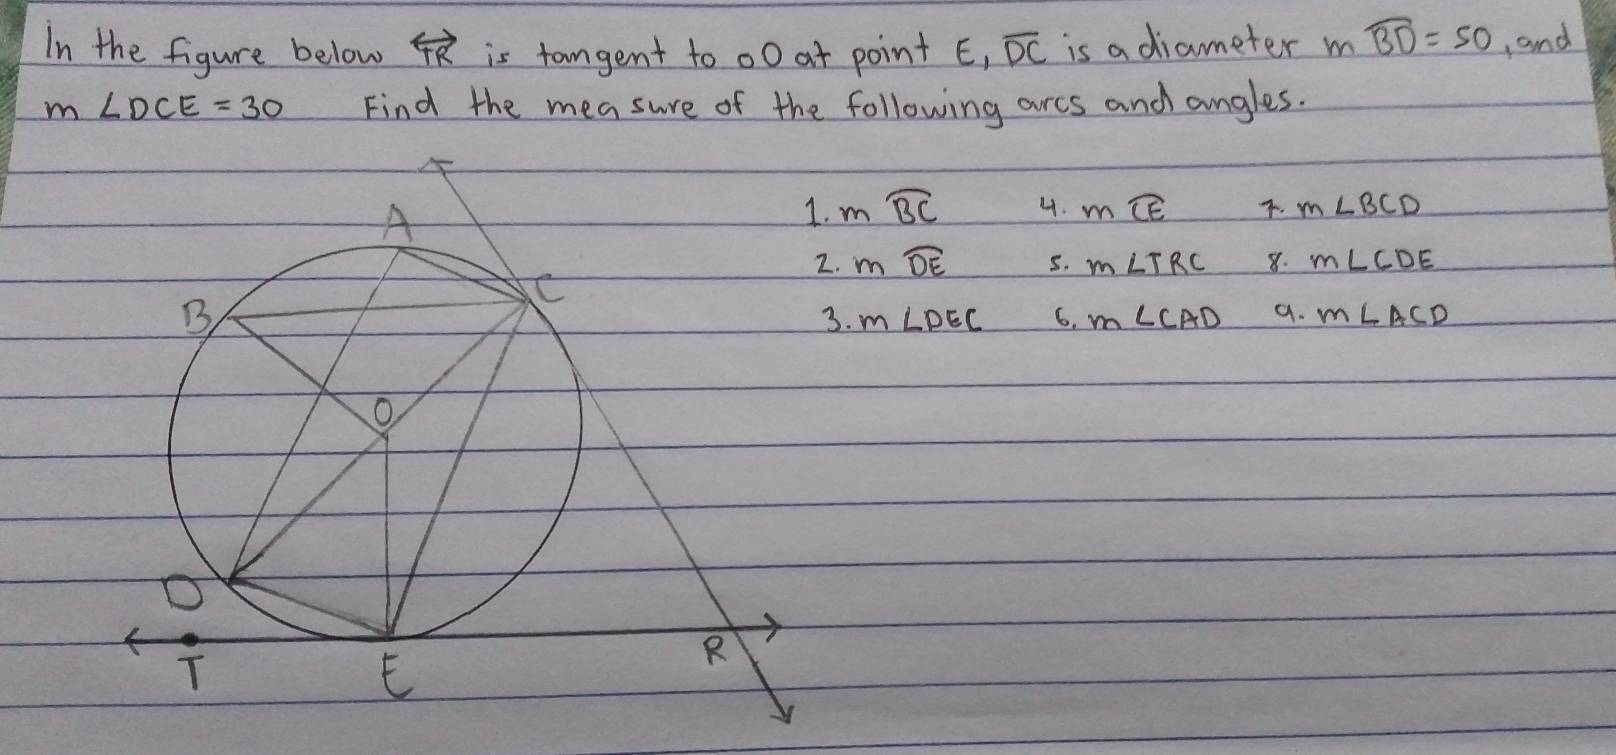 In the figure below TR is tangent to oO at point E, DC is a diameter m BD = 50, and
m ∠DCE = 30 Find the measure of the following arcs and angles.
1. m BC 4. m CE 7. m ∠BCD
2. m DE 5. m ∠TRC 8. m ∠CDE
3. m ∠DEC 6. m ∠CAD 9. m ∠ACD
A
C
B
O
D
R
T
E